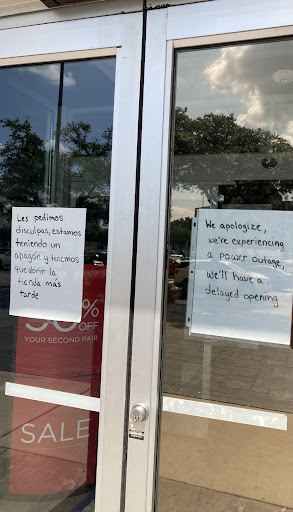 Les pedimos
disculpas, estamos
teniendo un
apagón y tenemos
que abrir la
tienda más
tarde
We apologize,
we're experiencing
a power outage,
we'll have a
delayed opening
50%
OFF
YOUR SECOND PAIR
SALE